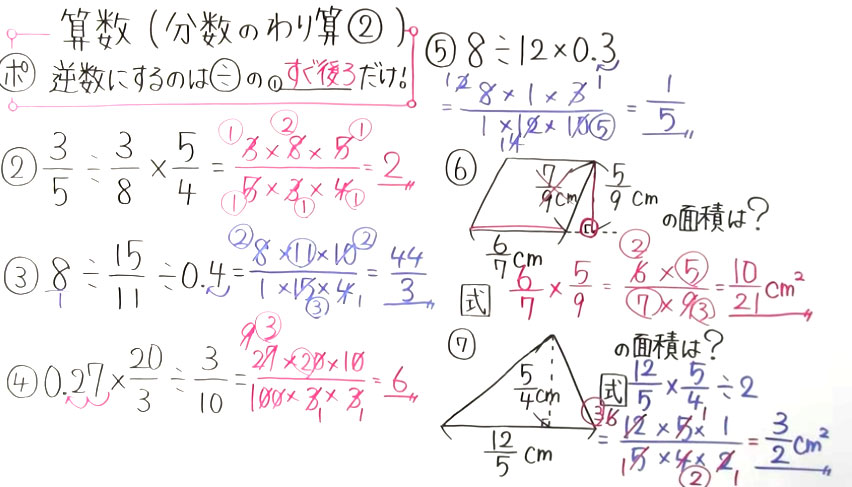 算数(分数のわり算②)
ポ 逆数にするのは÷の①すぐ後ろだけ!
② 3/5 ÷ 3/8 × 5/4 = 3×8×5/5×3×4 = 2
③ 8 ÷ 15/11 ÷ 0.4 = 8×11×10/1×15×4 = 44/3
④ 0.27 × 20/3 ÷ 3/10 = 27×20×10/100×3×3 = 6
⑤ 8÷12×0.3
= 8×1×3/1×12×10 = 1/5
⑥ 7/9cm 5/9cm の面積は?
6/7cm
式 6/7 × 5/9 = 6×5/7×9 = 10/21 cm²
⑦ の面積は?
5/4cm 式 12/5 × 5/4 ÷ 2
12/5 cm = 12×5×1/5×4×2 = 3/2 cm²